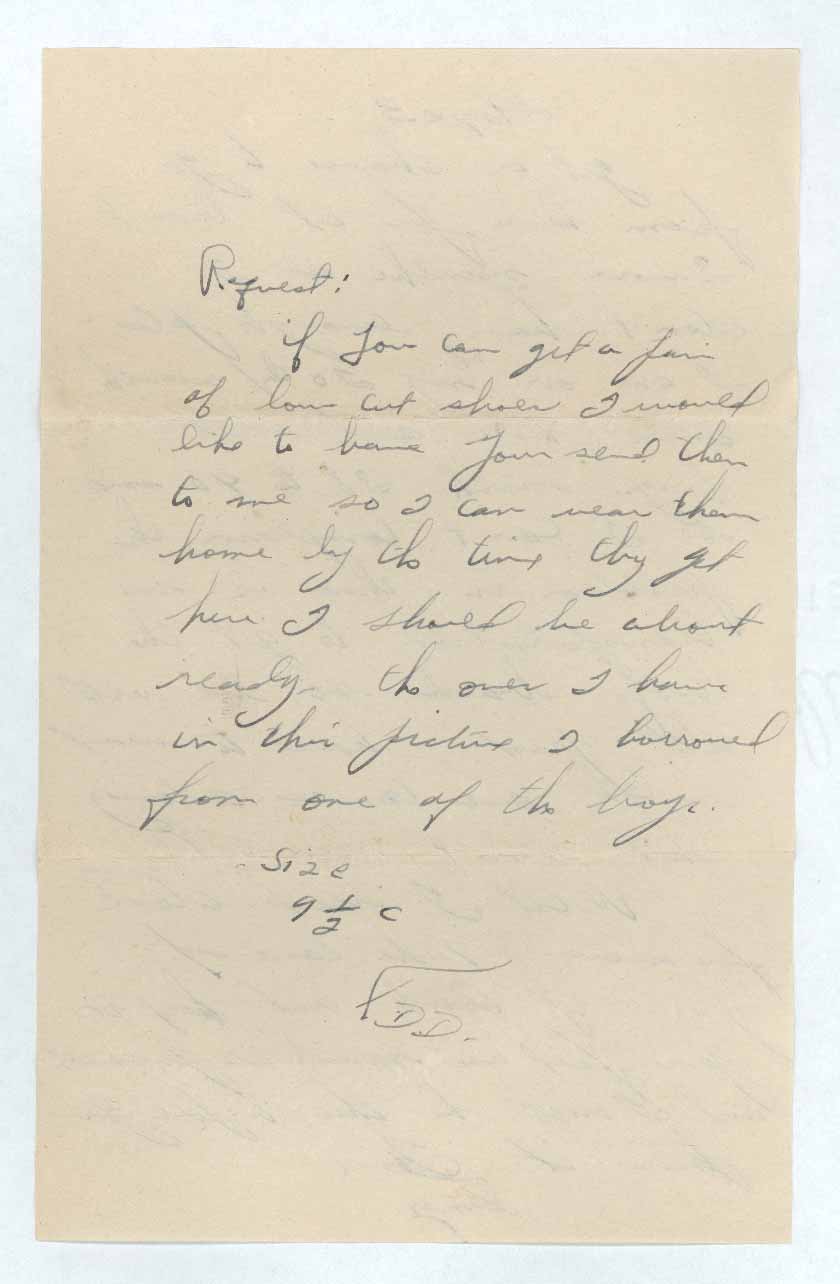 Request:
if You can get a pair
of low cut shoes I would
like to have You send them
to me so I can wear them
home by the time they get
here I should be about
ready. the ones I have
in this picture I borrowed
from one of the boys.
Size
9 1/2 C
FDD.